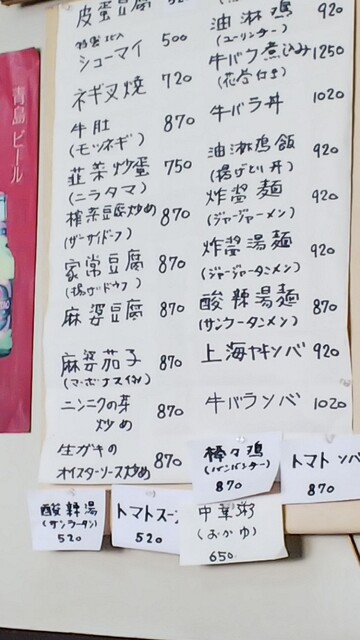 青島ビール
皮蛋豆腐
シューマイ 500
ネギ叉焼 720
牛肚 870
(モツネギ)
韮菜炒蛋 750
(ニラタマ)
榨菜豆腐炒め 870
(ザーサイドーフ)
家常豆腐 870
(揚げドウフ)
麻婆豆腐 870
麻婆茄子 870
(マーボナス)
ニンニクの芽
炒め 870
生ガキの
オイスターソース炒め 870
油淋鶏 920
(ユーリンチー)
牛バラ煮込み 1250
牛バラ丼 1020
油淋鶏飯 920
(揚げどり丼)
炸醤麺 920
(ジャージャーメン)
炸醤湯麺 920
(ジャージャータンメン)
酸辣湯麺 870
(サンラータンメン)
上海ヤキソバ 920
牛バラソバ 1020
棒々鶏
(バンバンヂー)
870
トマトソバ
870
酸辣湯
(サンラータン)
520
トマトスー
520
中華粥
(おかゆ)
650